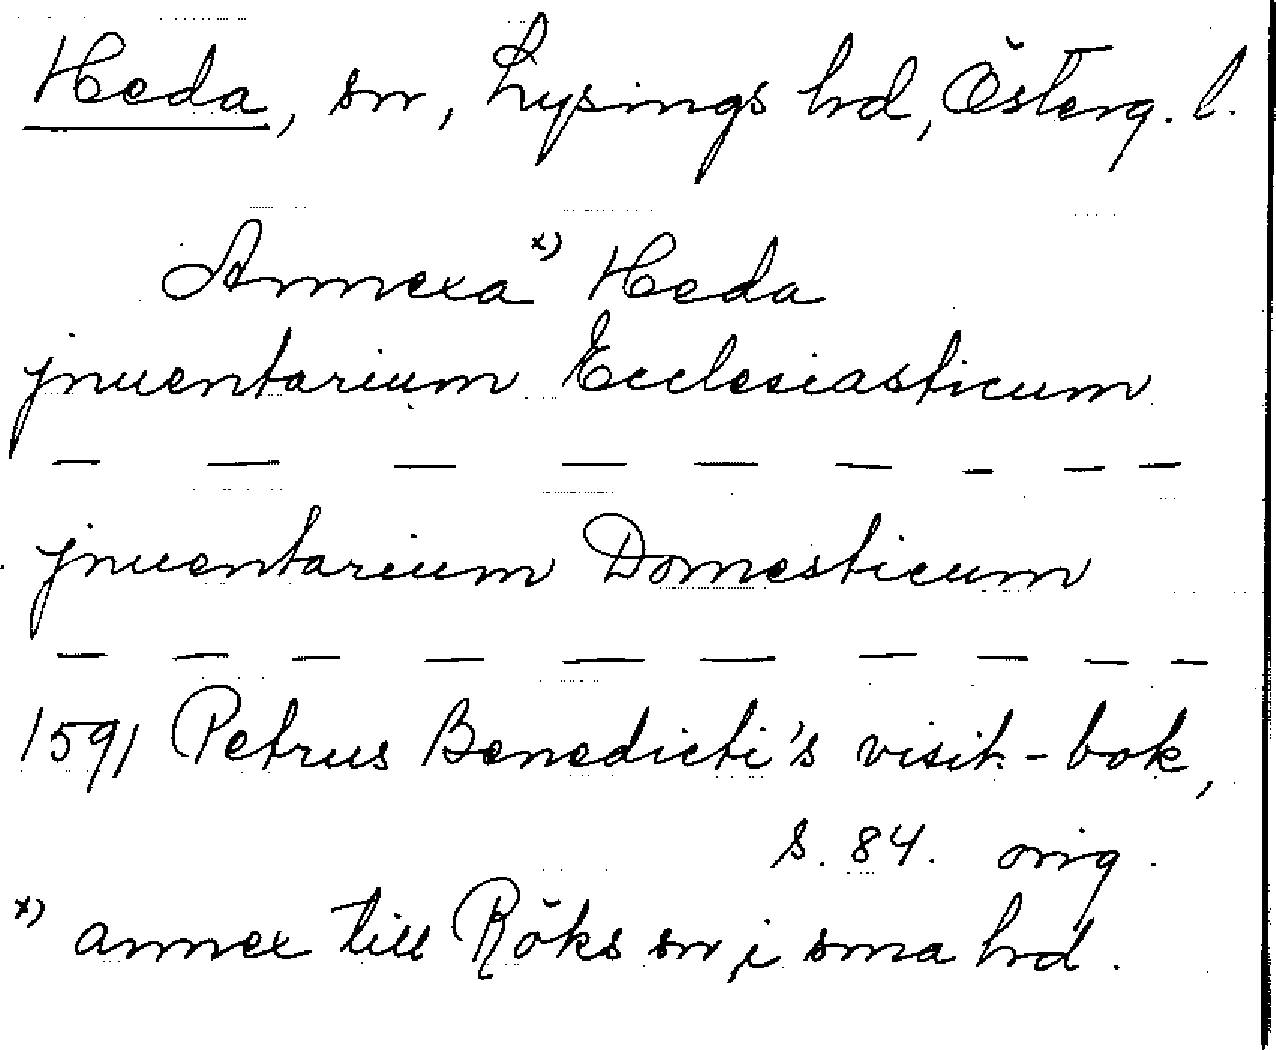 Heda, sn, Lysings hd, Österg. l.
Annexa x) Heda
jnuentarium Ecclesiasticum
— — — — — — — — —
jnuentarium Domesticum
— — — — — — — — — —
1591 Petrus Benedicti's visit.-bok,
s. 84. orig.
x) annex till Röks sn i sma hd.